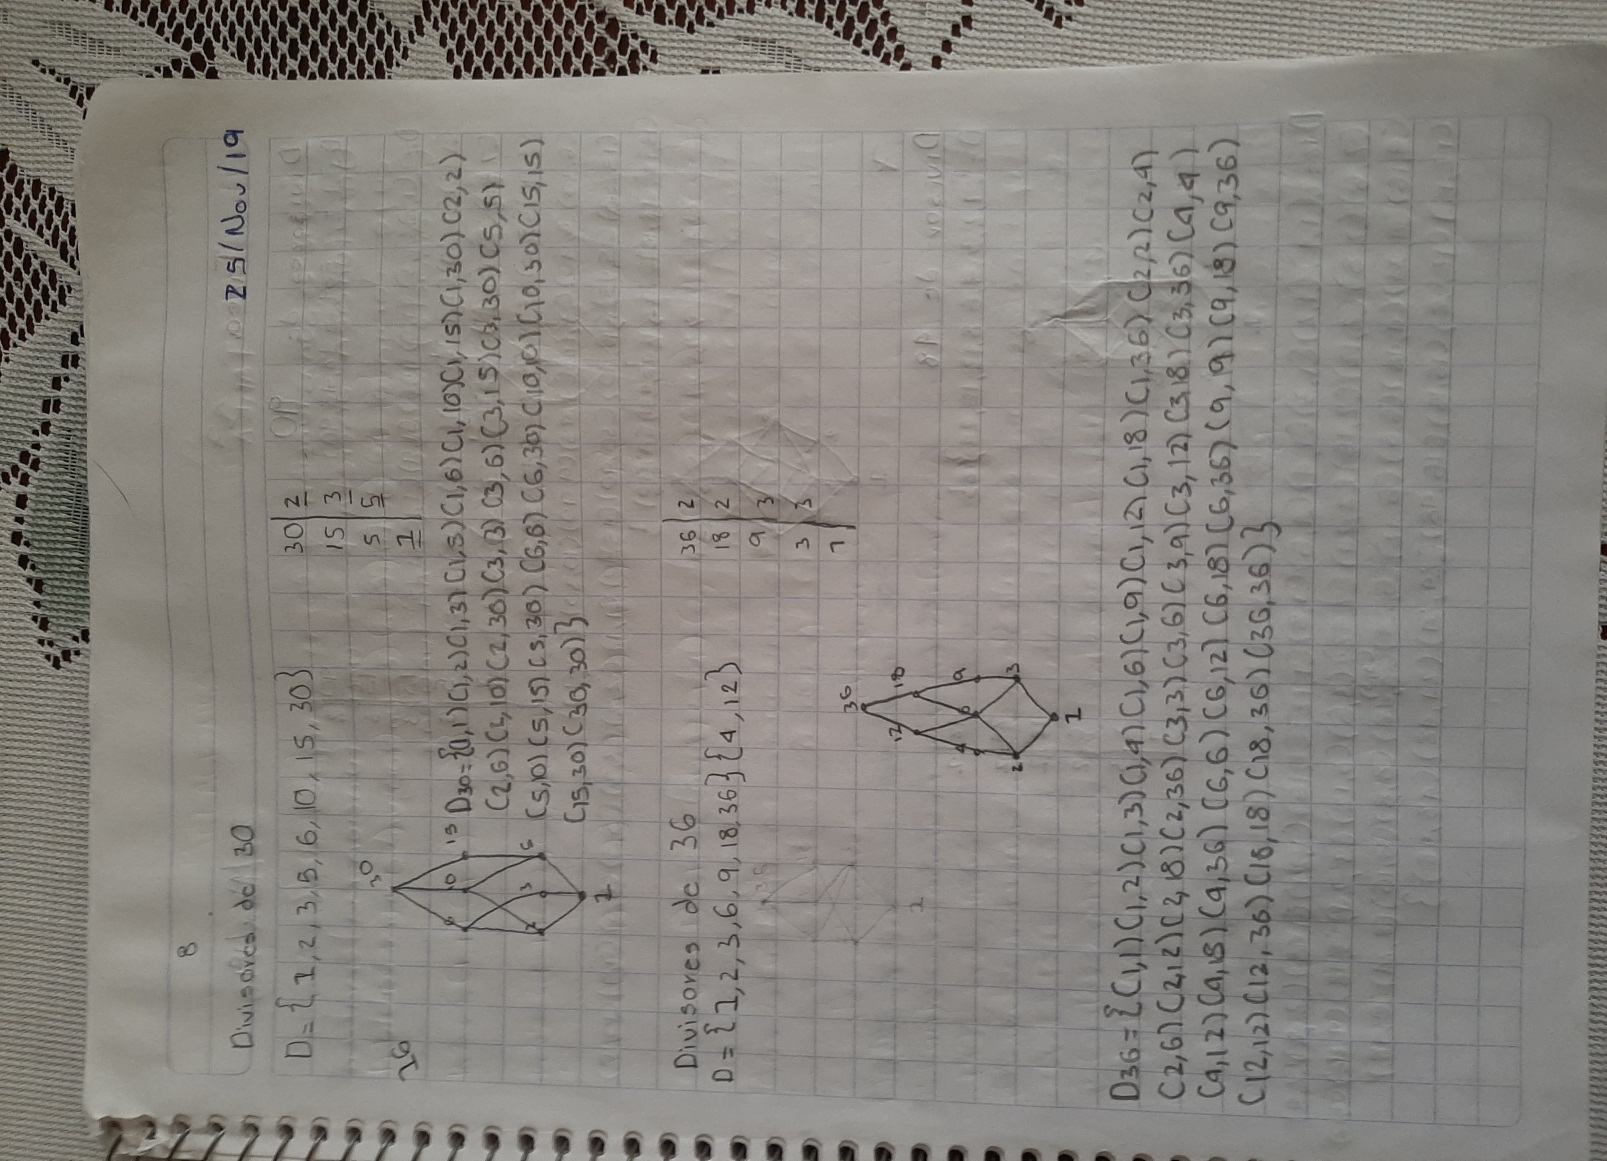 8
25/Nov/19
Divisores de 30
D={1,2,3,5,6,10,15,30}
30|2
15|3
5|5
1
26
30
6 10 15
2 3 5
1
D30={(1,1)(1,2)(1,3)(1,5)(1,6)(1,10)(1,15)(1,30)(2,2)
(2,6)(2,10)(2,30)(3,3)(3,6)(3,15)(3,30)(5,5)
(5,10)(5,15)(5,30)(6,6)(6,30)(10,10)(10,30)(15,15)
(15,30)(30,30)}
Divisores de 36
D={1,2,3,6,9,18,36}{4,12}
36|2
18|2
9|3
3|3
1
36
12 18
4 6 9
2 3
1
D36={(1,1)(1,2)(1,3)(1,4)(1,6)(1,9)(1,12)(1,18)(1,36)(2,2)(2,4)
(2,6)(2,12)(2,18)(2,36)(3,3)(3,6)(3,9)(3,12)(3,18)(3,36)(4,4)
(4,12)(4,18)(4,36)(6,6)(6,12)(6,18)(6,36)(9,9)(9,18)(9,36)
(12,12)(12,36)(18,18)(18,36)(36,36)}